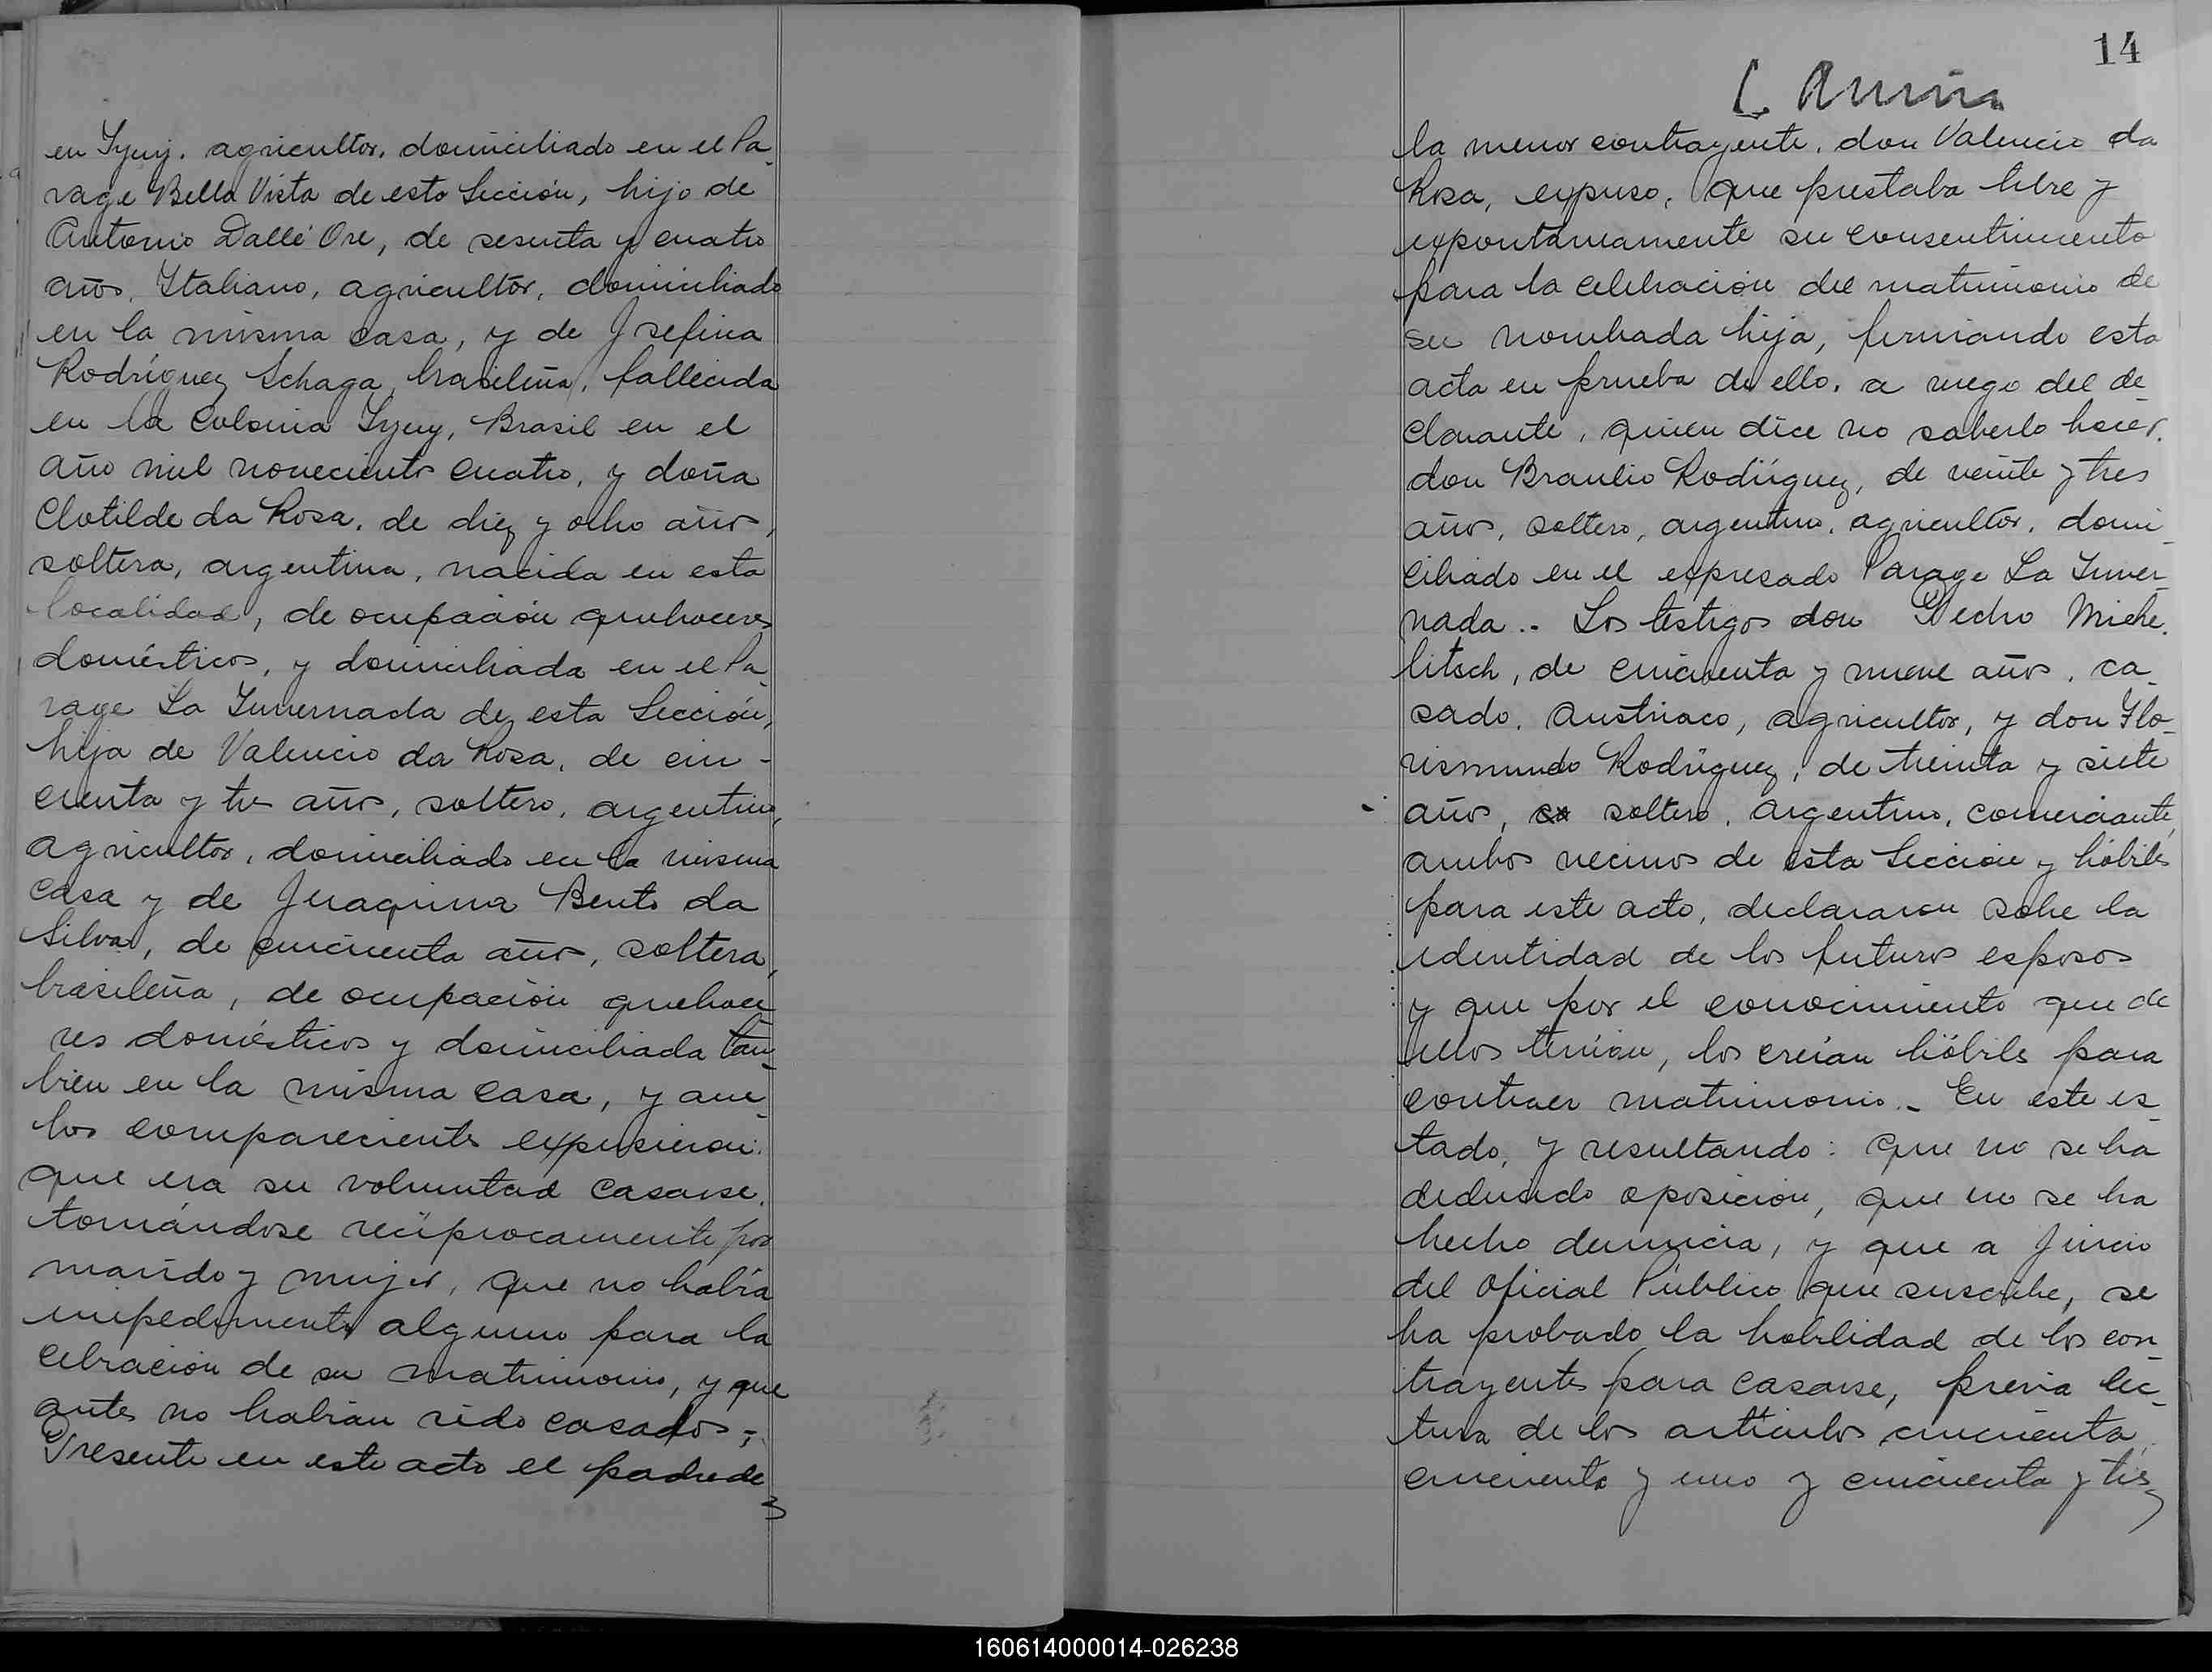 en Yyuy. agricultor, domiciliado en el Pa_
rage Bella Vista de esta Sección, hijo de
Antonio Dallé Ore, de sesenta y cuatro
años, Italiano, agricultor, domiciliado
en la misma casa, y de Josefina
Rodríguez Schaga, brasileña, fallecida
en la Colonia Yyuy, Brasil en el
año mil novecientos cuatro, y doña
Clotilde da Rosa, de diez y ocho años,
soltera, argentina, nacida en esta
localidad, de ocupación quehaceres
domésticos, y domiciliada en el Pa_
rage La Invernada de esta Sección,
hija de Valencio da Rosa, de cin-
cuenta y tres años, soltero, argentino,
agricultor, domiciliado en la misma
casa y de Juaquina Bento da
Silva, de cincuenta años, soltera,
brasileña, de ocupación quehace_
res domésticos y domiciliada tam_
bien en la misma casa, y am_
bos comparecientes expusieron:
que era su voluntad casarse,
tomándose recíprocamente por
marido y mujer, que no había
impedimento alguno para la
celbración de su matrimonio, y que
antes no habían sido casados;-
Presente en este acto el padre de
14
la menor contrayente, don Valencio da
Rosa, expuso, que prestaba libre y
expontaneamente su consentimiento
para la celebración del matrimonio de
su nombrada hija, firmando esta
acta en prueba de ello, a ruego del de_
clarante, quien dice no saberlo hacer,
don Braulio Rodríguez, de veinte y tres
años, soltero, argentino, agricultor, domi_
ciliado en el expresado Parage La Inver_
nada.. Los testigos don Pedro Miche_
litsch, de cincuenta y nueve años, ca_
sado, Austriaco, agricultor, y don Flo_
rismundo Rodríguez, de treinta y siete
años, soltero, argentino, comerciante,
ambos vecinos de esta Sección y hábiles
para este acto, declararon sobre la
identidad de los futuros esposos
y que por el conocimiento que de
ellos tenían, los creían hábiles para
contraer matrimonio.- En este es_
tado, y resultando: que no se ha
deducido oposición, que no se ha
hecho denuncia, y que a juicio
del oficial Público que suscribe, se
ha probado la habilidad de los con_
trayentes para casarse, previa lec_
tura de los artículos cincuenta,
cincuenta y uno y cincuenta y tres
160614000014-026238